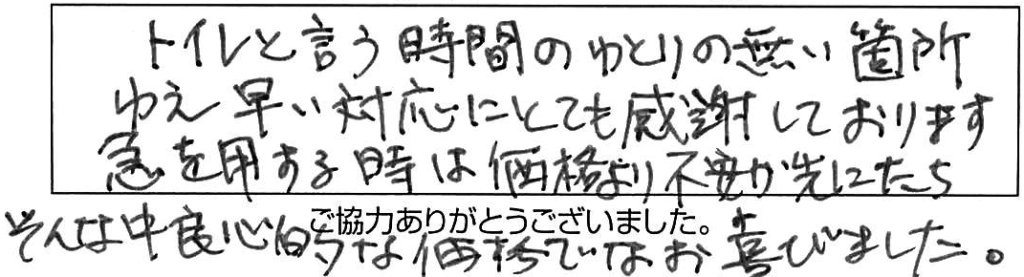 トイレと言う時間のゆとりの無い箇所
ゆえ早い対応にとても感謝しております
急を用する時は価格より不安が先にたち
ご協力ありがとうございました。
そんな中良心的な価格でなお喜びました。